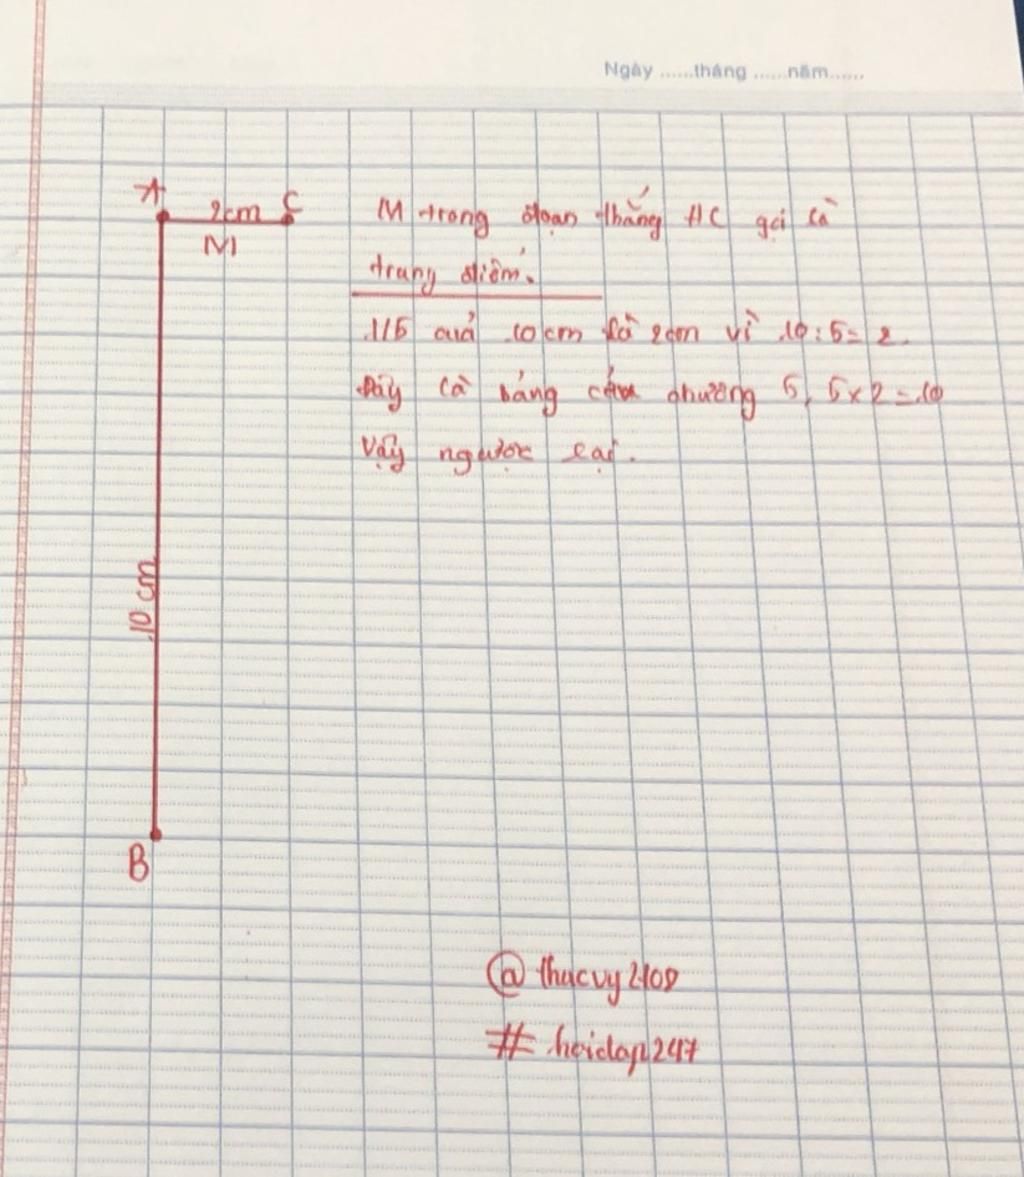 Ngày ......tháng ......năm......
A
2cm C
M
M trong đoạn thẳng AC gọi là
trung điểm.
1/5 của 10 cm là 2cm vì 10:5=2.
Đây là bảng cửu chương 5, 5x2=10
Vậy ngược lại.
10 cm
B
@thucvy2108
# hoidap247